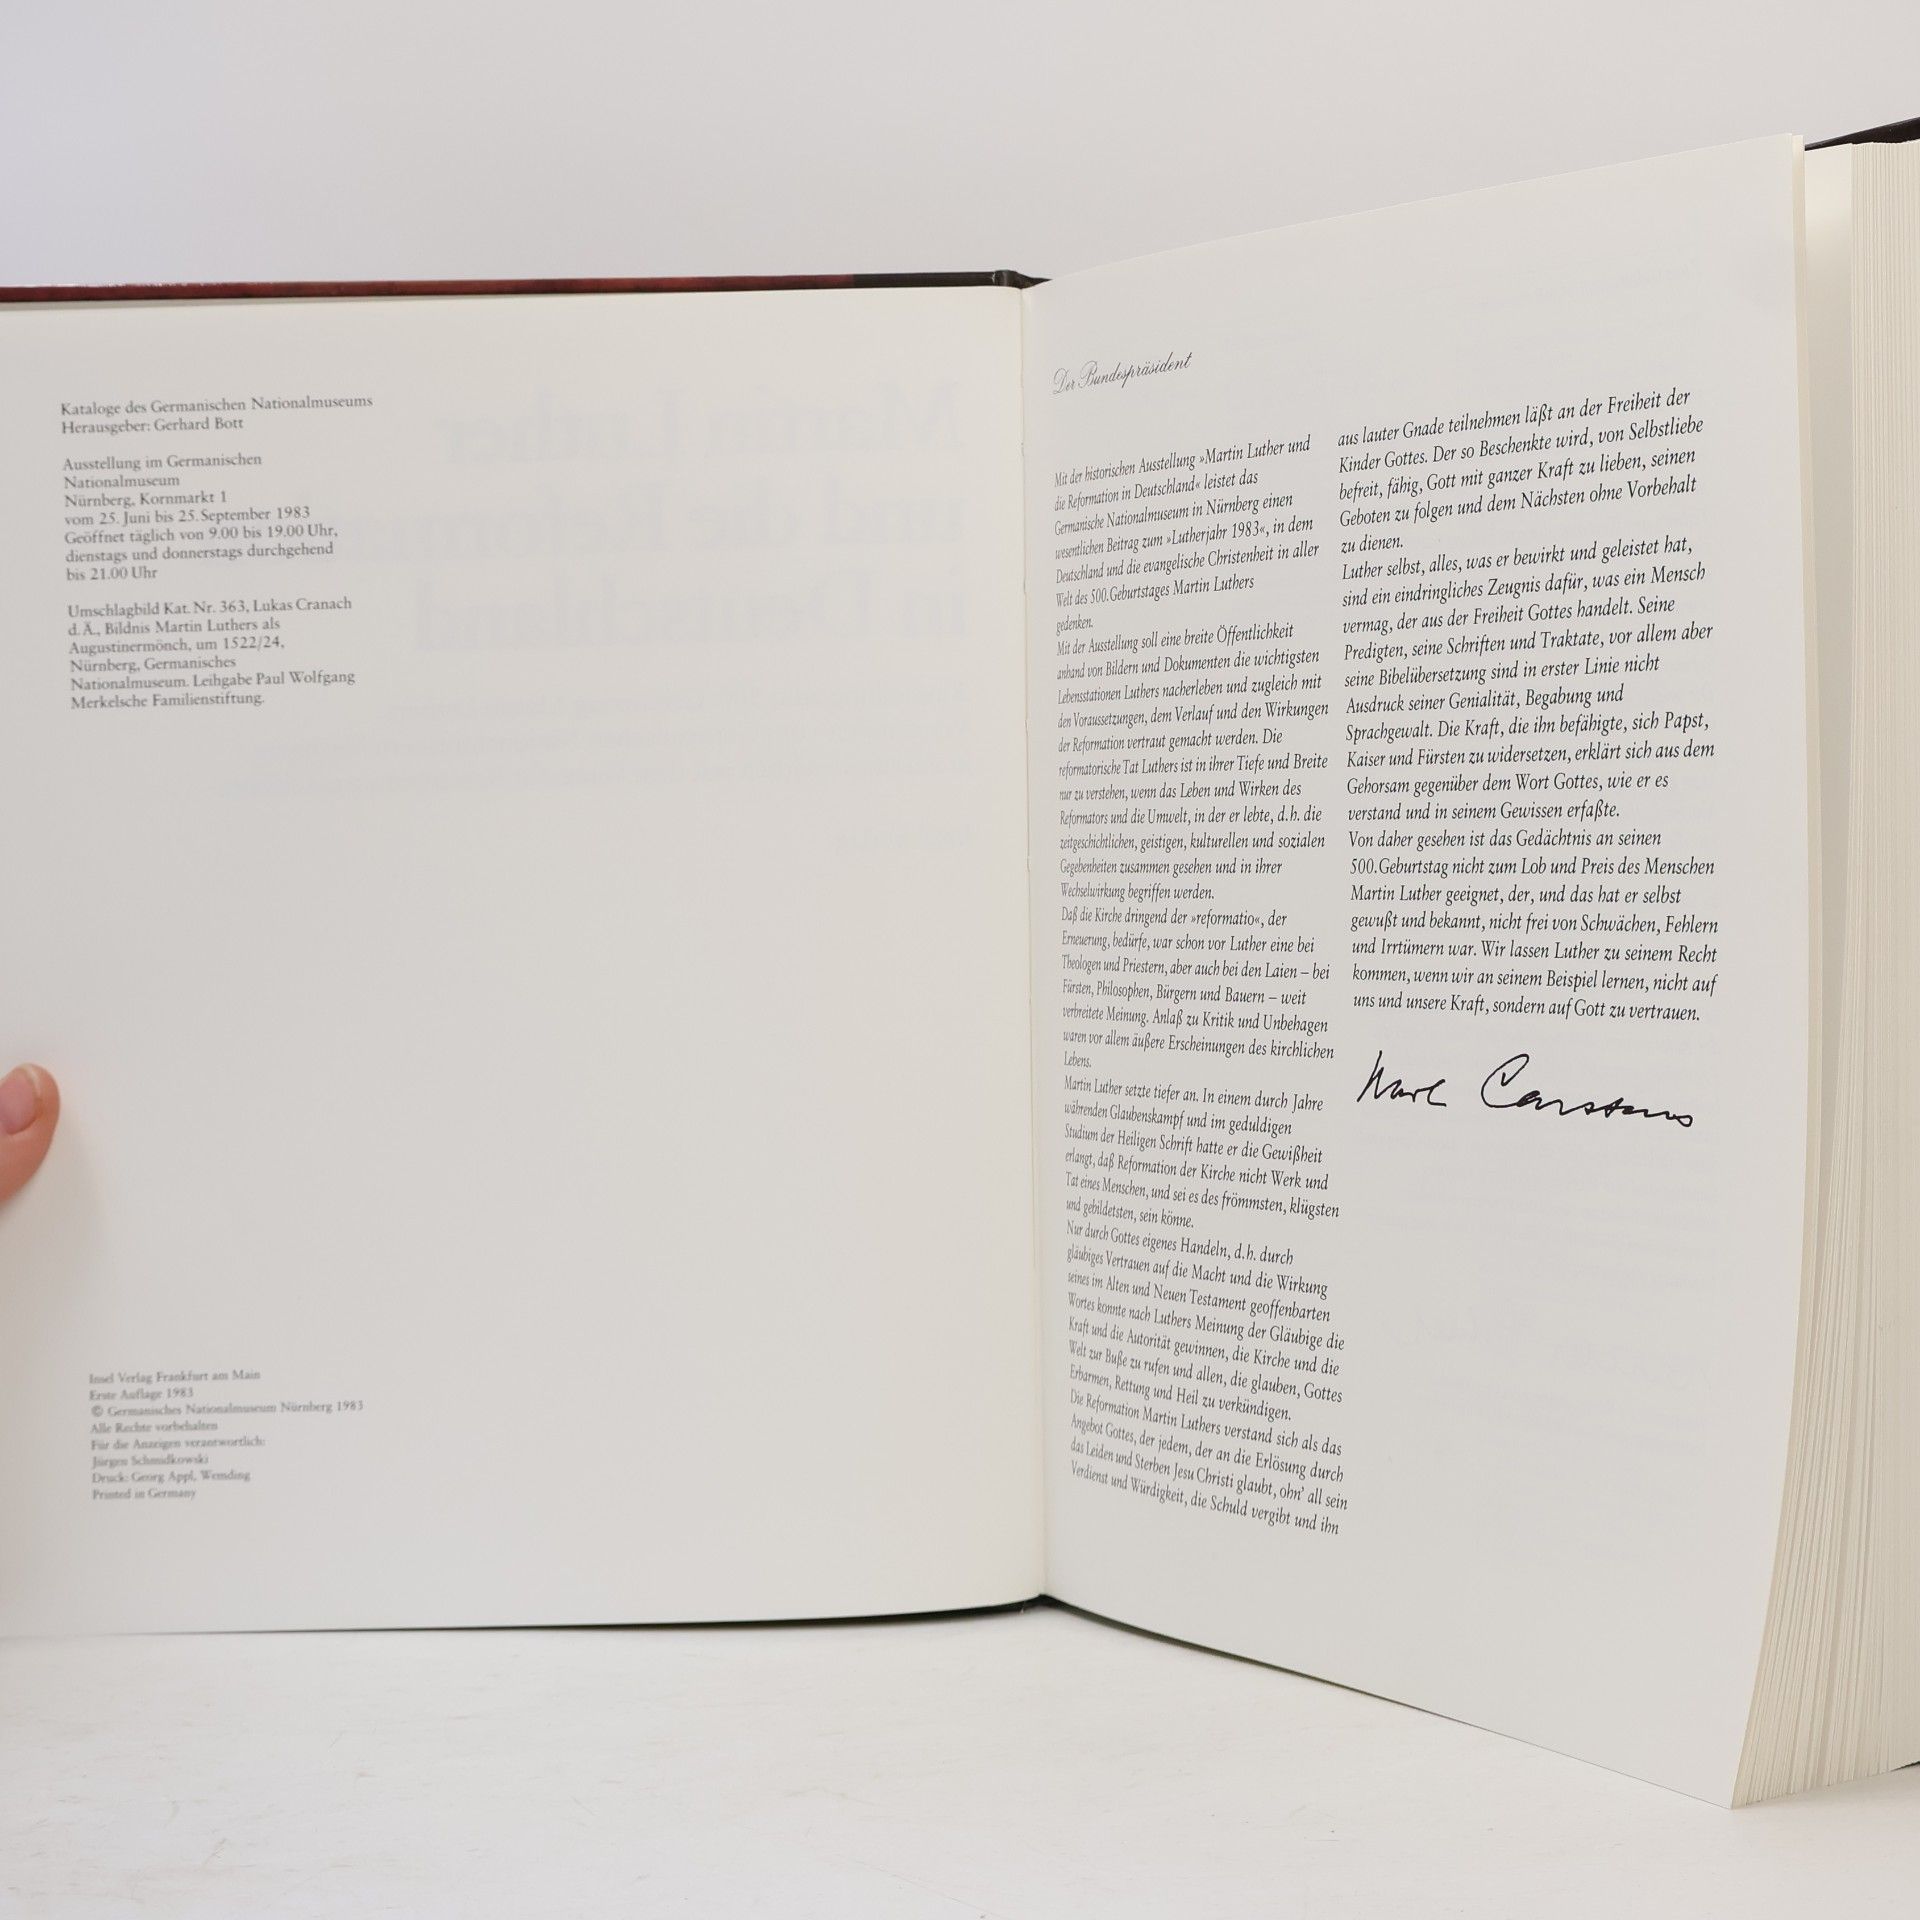 Kataloge des Germanischen Nationalmuseums
Herausgeber: Gerhard Bott
Ausstellung im Germanischen
Nationalmuseum
Nürnberg, Kornmarkt 1
vom 25. Juni bis 25. September 1983
Geöffnet täglich von 9.00 bis 19.00 Uhr,
dienstags und donnerstags durchgehend
bis 21.00 Uhr
Umschlagbild Kat. Nr. 363, Lukas Cranach
d. Ä., Bildnis Martin Luthers als
Augustinermönch, um 1522/24,
Nürnberg, Germanisches
Nationalmuseum. Leihgabe Paul Wolfgang
Merkelsche Familienstiftung.
Insel Verlag Frankfurt am Main
Erste Auflage 1983
© Germanisches Nationalmuseum Nürnberg 1983
Alle Rechte vorbehalten
Für die Anzeigen verantwortlich:
Jürgen Schmidkowski
Druck: Georg Appl, Wemding
Printed in Germany
Der Bundespräsident
Mit der historischen Ausstellung »Martin Luther und
die Reformation in Deutschland« leistet das
Germanische Nationalmuseum in Nürnberg einen
wesentlichen Beitrag zum »Lutherjahr 1983«, in dem
Deutschland und die evangelische Christenheit in aller
Welt des 500. Geburtstages Martin Luthers
gedenken.
Mit der Ausstellung soll eine breite Öffentlichkeit
anhand von Bildern und Dokumenten die wichtigsten
Lebensstationen Luthers nacherleben und zugleich mit
den Voraussetzungen, dem Verlauf und den Wirkungen
der Reformation vertraut gemacht werden. Die
reformatorische Tat Luthers ist in ihrer Tiefe und Breite
nur zu verstehen, wenn das Leben und Wirken des
Reformators und die Umwelt, in der er lebte, d. h. die
zeitgeschichtlichen, geistigen, kulturellen und sozialen
Gegebenheiten zusammen gesehen und in ihrer
Wechselwirkung begriffen werden.
Daß die Kirche dringend der »reformatio«, der
Erneuerung, bedürfe, war schon vor Luther eine bei
Theologen und Priestern, aber auch bei den Laien – bei
Fürsten, Philosophen, Bürgern und Bauern – weit
verbreitete Meinung. Anlaß zu Kritik und Unbehagen
waren vor allem äußere Erscheinungen des kirchlichen
Lebens.
Martin Luther setzte tiefer an. In einem durch Jahre
währenden Glaubenskampf und im geduldigen
Studium der Heiligen Schrift hatte er die Gewißheit
erlangt, daß Reformation der Kirche nicht Werk und
Tat eines Menschen, und sei es des frömmsten, klügsten
und gebildetsten, sein könne.
Nur durch Gottes eigenes Handeln, d. h. durch
gläubiges Vertrauen auf die Macht und die Wirkung
seines im Alten und Neuen Testament geoffenbarten
Wortes konnte nach Luthers Meinung der Gläubige die
Kraft und die Autorität gewinnen, die Kirche und die
Welt zur Buße zu rufen und allen, die glauben, Gottes
Erbarmen, Rettung und Heil zu verkündigen.
Die Reformation Martin Luthers verstand sich als das
Angebot Gottes, der jedem, der an die Erlösung durch
das Leiden und Sterben Jesu Christi glaubt, ohn' all sein
Verdienst und Würdigkeit, die Schuld vergibt und ihn
aus lauter Gnade teilnehmen läßt an der Freiheit der
Kinder Gottes. Der so Beschenkte wird, von Selbstliebe
befreit, fähig, Gott mit ganzer Kraft zu lieben, seinen
Geboten zu folgen und dem Nächsten ohne Vorbehalt
zu dienen.
Luther selbst, alles, was er bewirkt und geleistet hat,
sind ein eindringliches Zeugnis dafür, was ein Mensch
vermag, der aus der Freiheit Gottes handelt. Seine
Predigten, seine Schriften und Traktate, vor allem aber
seine Bibelübersetzung sind in erster Linie nicht
Ausdruck seiner Genialität, Begabung und
Sprachgewalt. Die Kraft, die ihn befähigte, sich Papst,
Kaiser und Fürsten zu widersetzen, erklärt sich aus dem
Gehorsam gegenüber dem Wort Gottes, wie er es
verstand und in seinem Gewissen erfaßte.
Von daher gesehen ist das Gedächtnis an seinen
500. Geburtstag nicht zum Lob und Preis des Menschen
Martin Luther geeignet, der, und das hat er selbst
gewußt und bekannt, nicht frei von Schwächen, Fehlern
und Irrtümern war. Wir lassen Luther zu seinem Recht
kommen, wenn wir an seinem Beispiel lernen, nicht auf
uns und unsere Kraft, sondern auf Gott zu vertrauen.
Karl Carstens